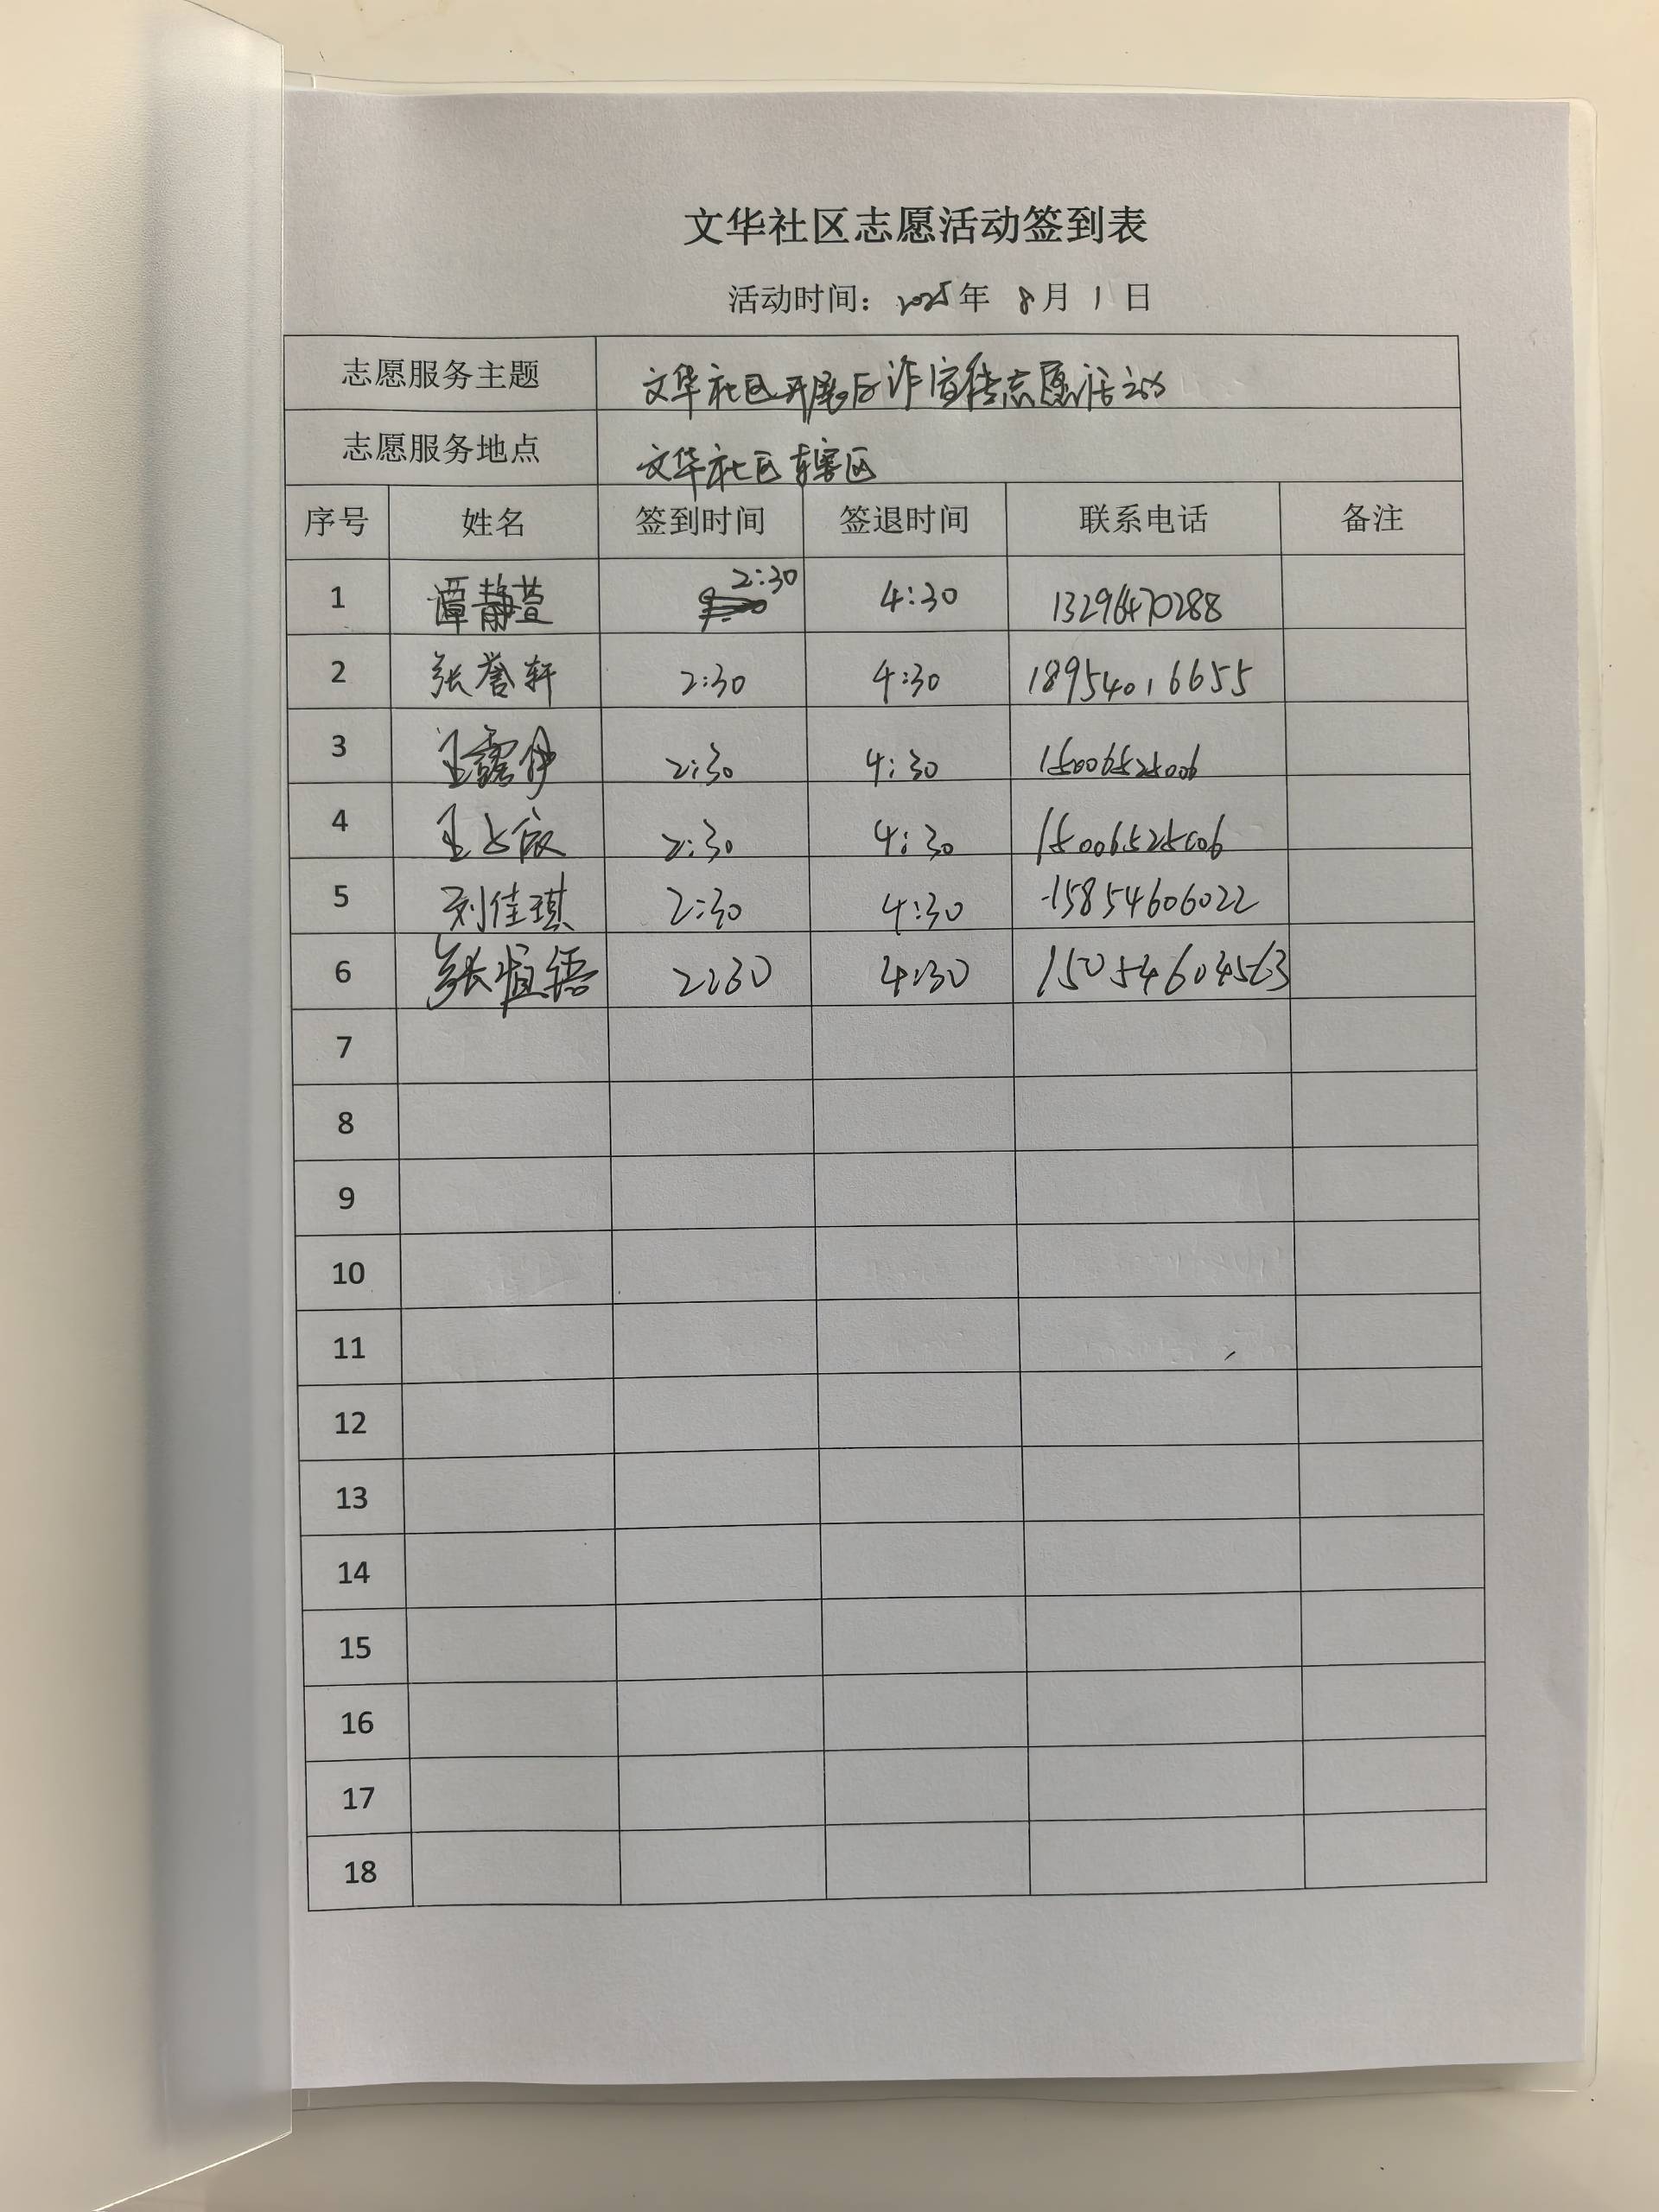 文华社区志愿活动签到表
活动时间：2025年 8月 1日
志愿服务主题 文华社区开展反诈宣传志愿活动
志愿服务地点 文华社区辖区
序号 姓名 签到时间 签退时间 联系电话 备注
1 谭静萱 2:30 4:30 13296470288
2 张誉轩 2:30 4:30 18954016655
3 王露伊 2:30 4:30 15006525006
4 王 2:30 4:30 15006525006
5 刘佳琪 2:30 4:30 15854606022
6 张恒语 2:30 4:30 15054604563
7
8
9
10
11
12
13
14
15
16
17
18